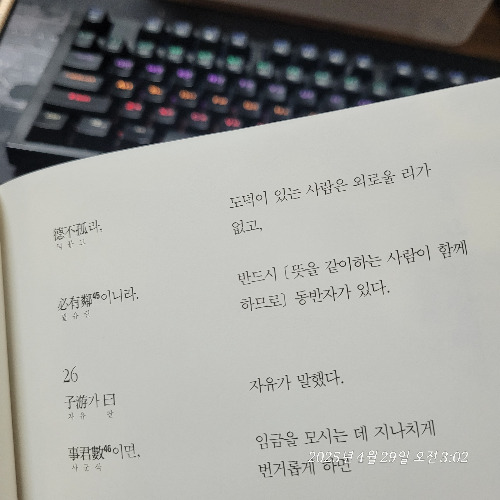 德不孤라,
덕불고
도덕이 있는 사람은 외로울 리가
없고,
必有鄰45이니라.
필유린
반드시 [뜻을 같이하는 사람이 함께
하므로] 동반자가 있다.
26
子游가 曰
자유 왈
자유가 말했다.
事君數46이면,
사군삭
임금을 모시는 데 지나치게
번거롭게 하면
2025년 4월 29일 오전 3:02